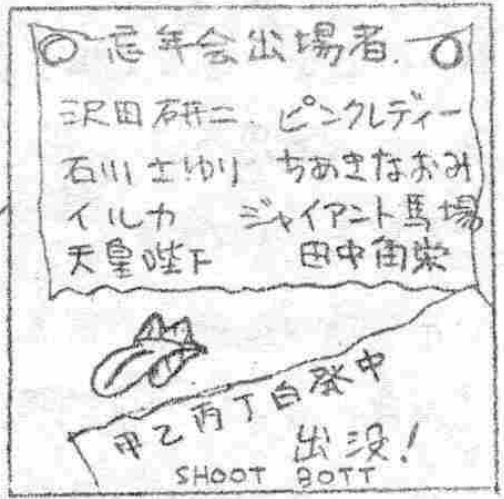 忘年会出場者.
沢田研二 ピンクレディー
石川さゆり ちあきなおみ
イルカ ジャイアント馬場
天皇陛下 田中角栄
甲乙丙丁白発中
出没!
SHOOT BOTT